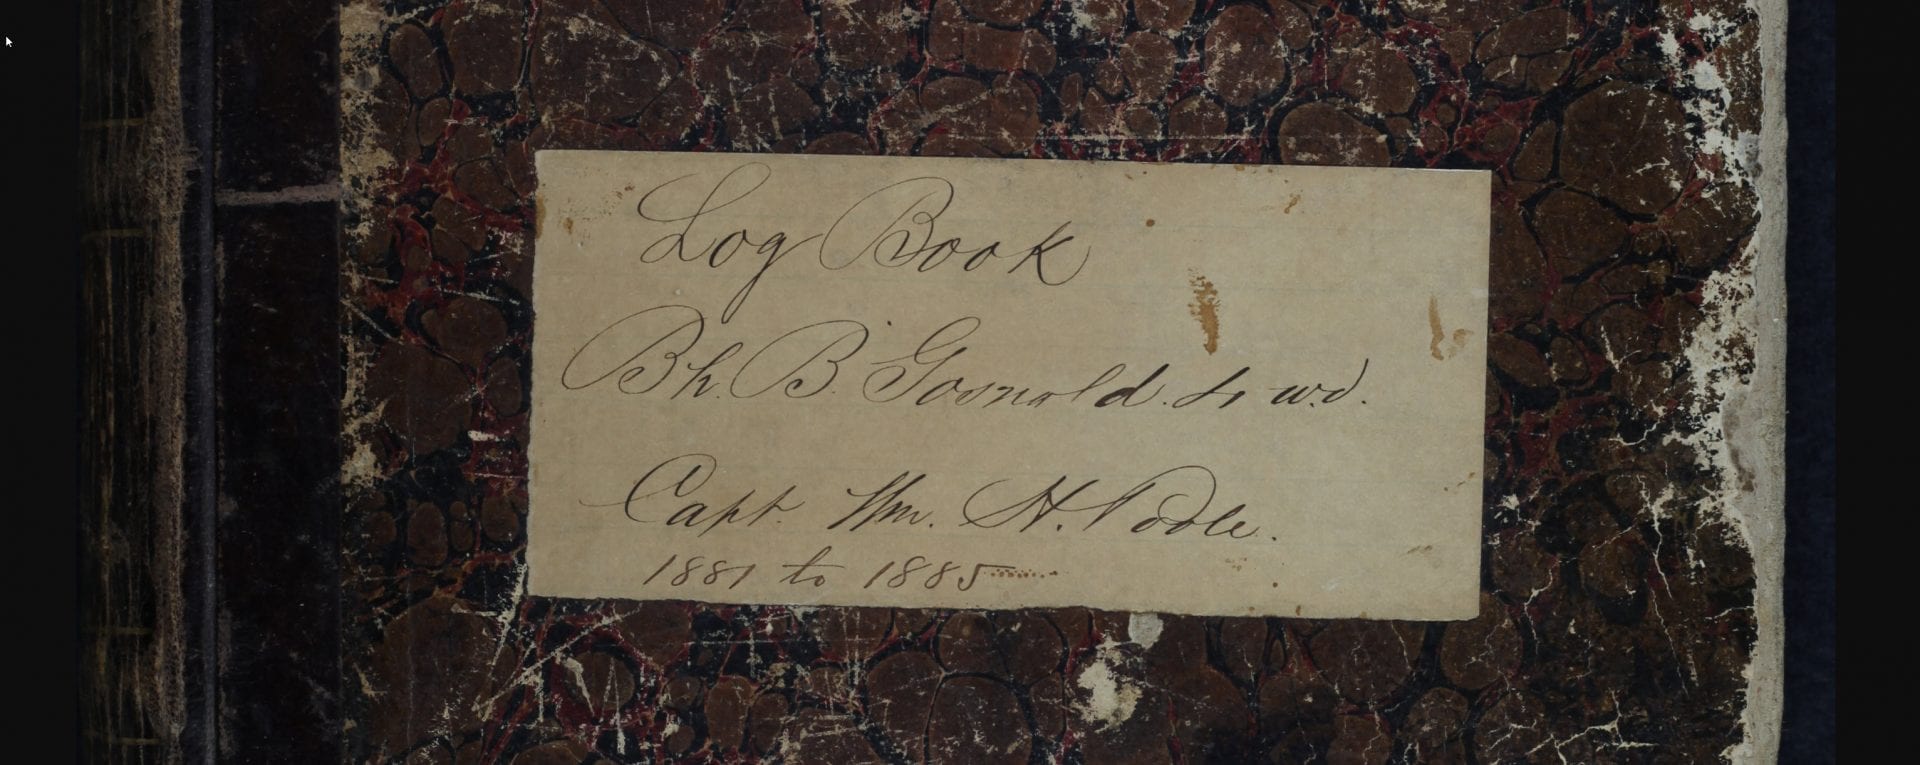 Log Book
Bk. B. Gosnold.
Capt. Wm. H. Poole.
1881 to 1885